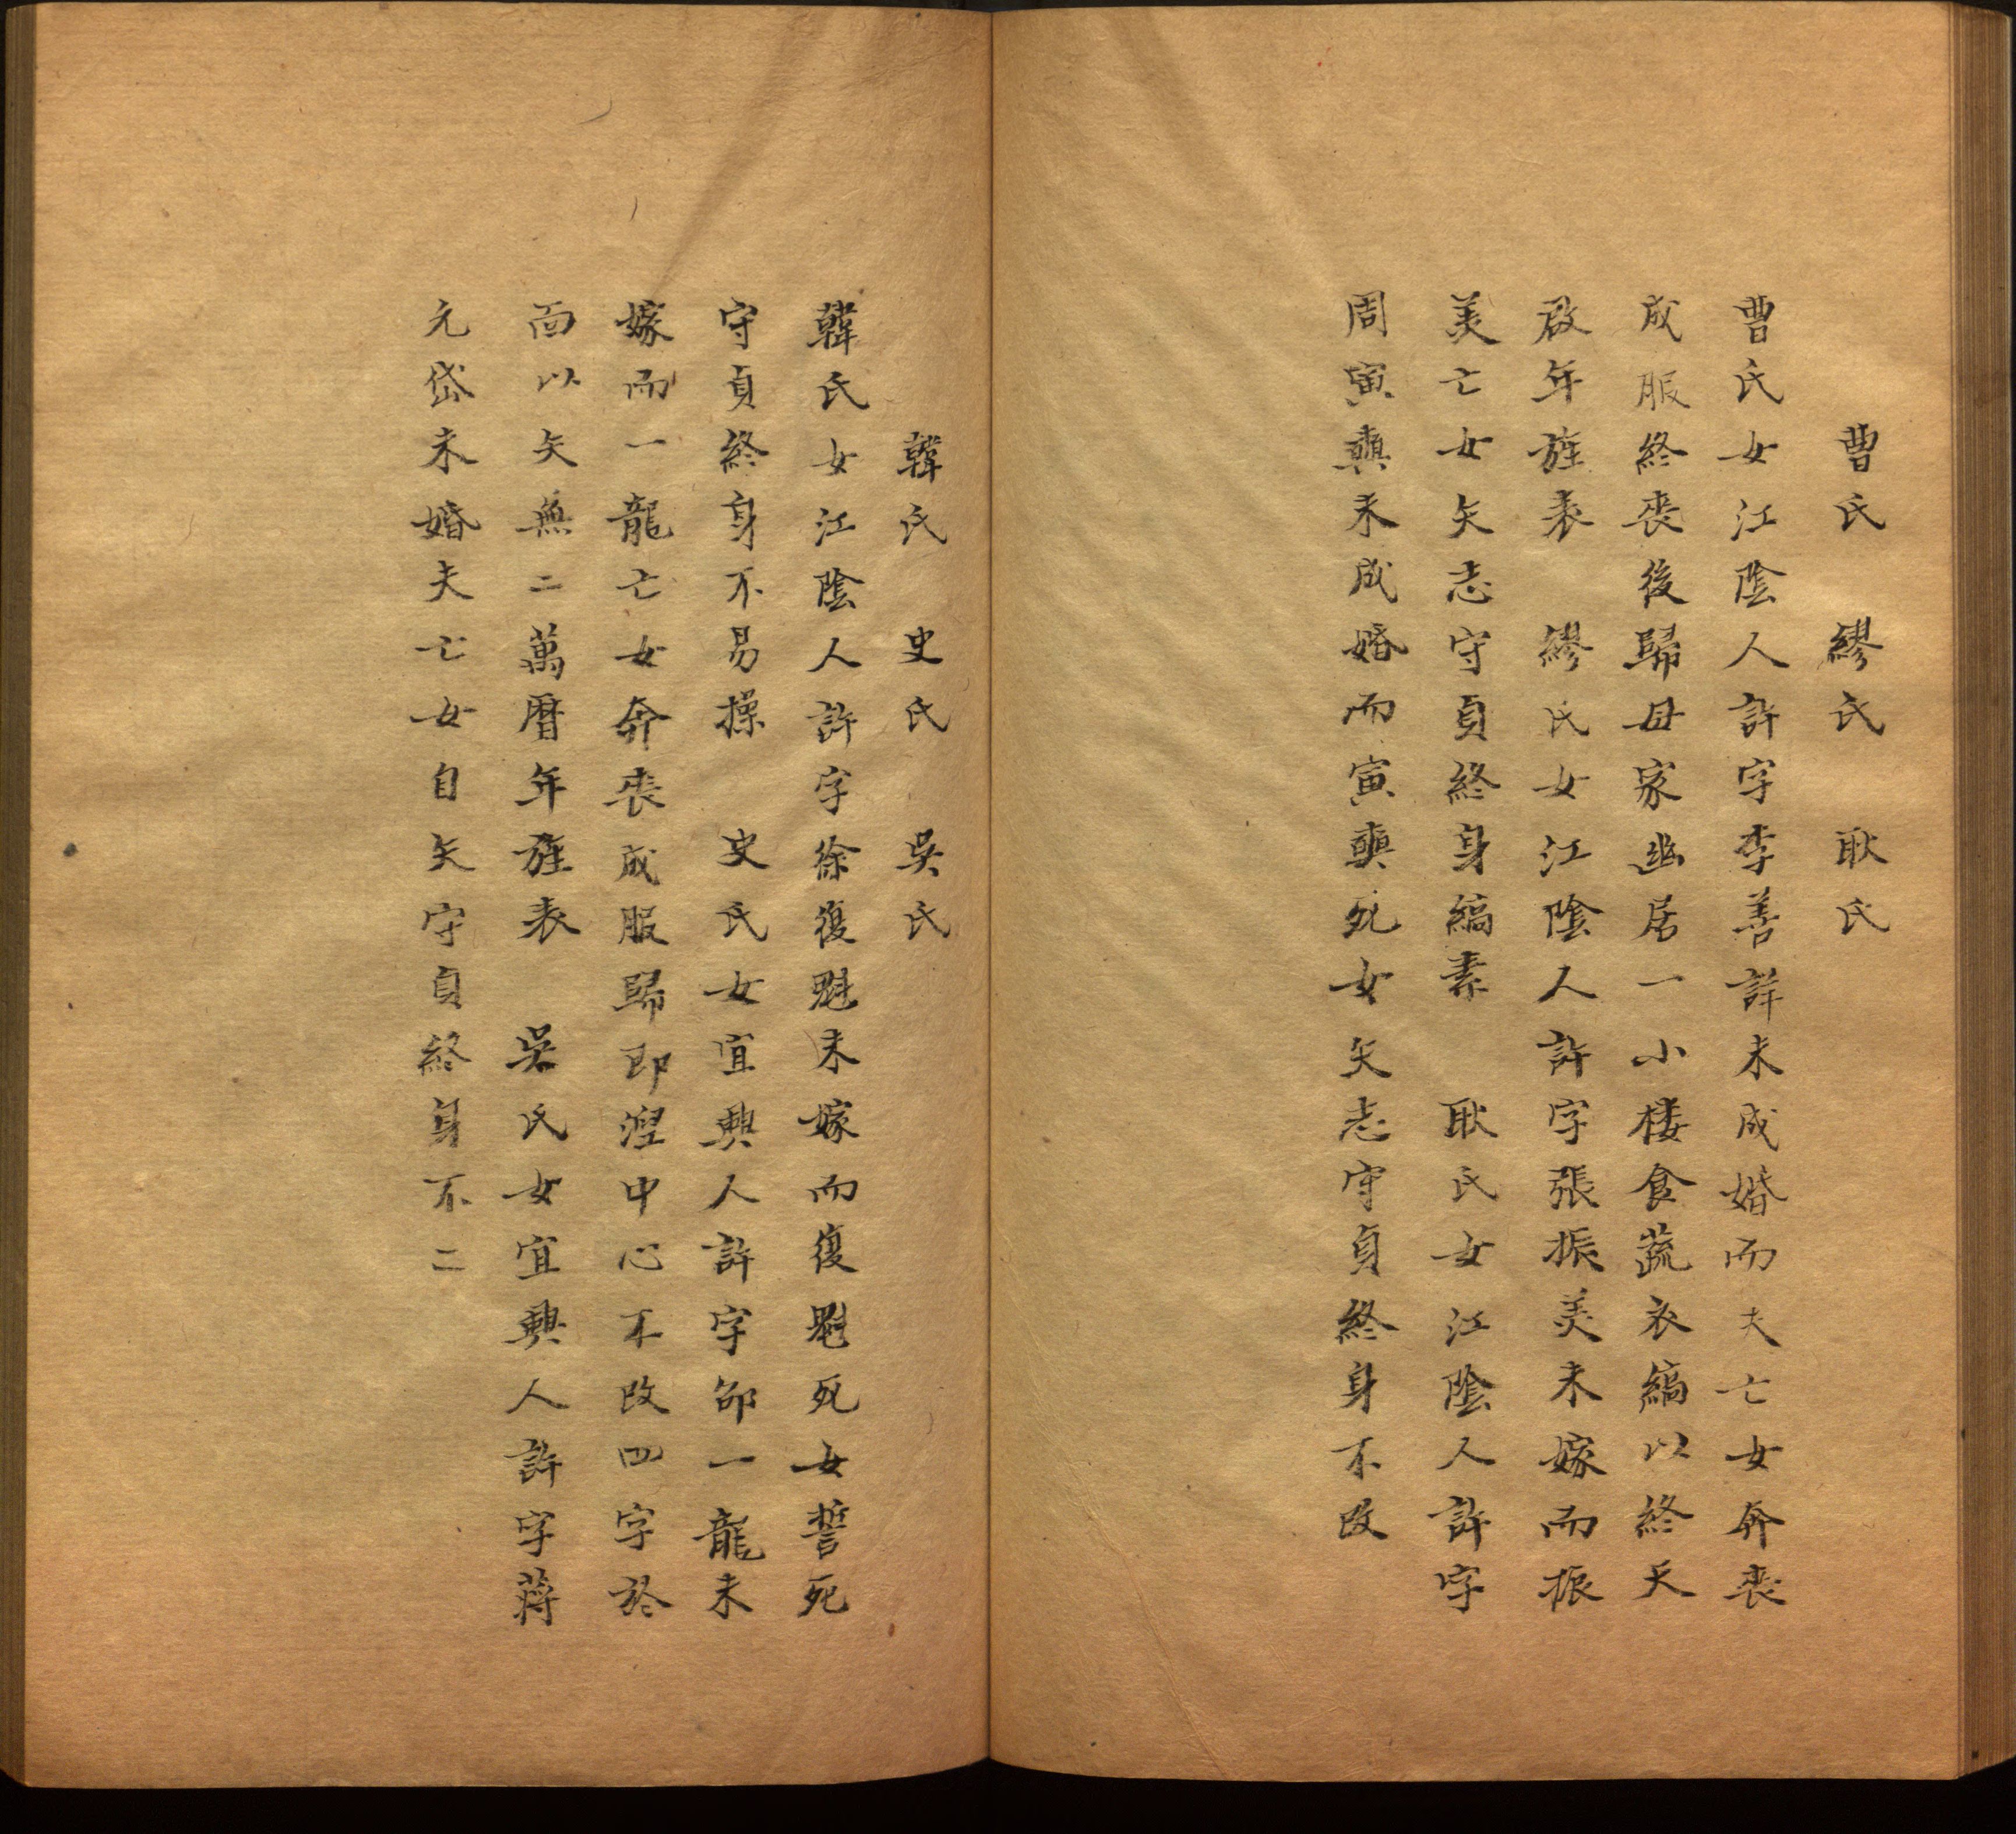 曹氏　繆氏　耿氏
曹氏女江陰人許字李善詳未成婚而夫亡女奔喪
成服終喪後歸母家幽居一小楼食蔬衣縞以終天
啟年旌表　繆氏女江陰人許字張振美未嫁而振
美亡女矢志守貞終身縞素　耿氏女江陰人許字
周寅未成婚而寅死女矢志守貞終身不改
韓氏　史氏　吳氏
韓氏女江陰人許字徐復魁未嫁而復魁死女誓死
守貞終身不易操　史氏女宜興人許字邵一龍未
嫁而一龍亡女奔喪成服歸即湼中心不改四字於
面以矢無二萬曆年旌表　吳氏女宜興人許字蔣
元岱未婚夫亡女自矢守貞終身不二